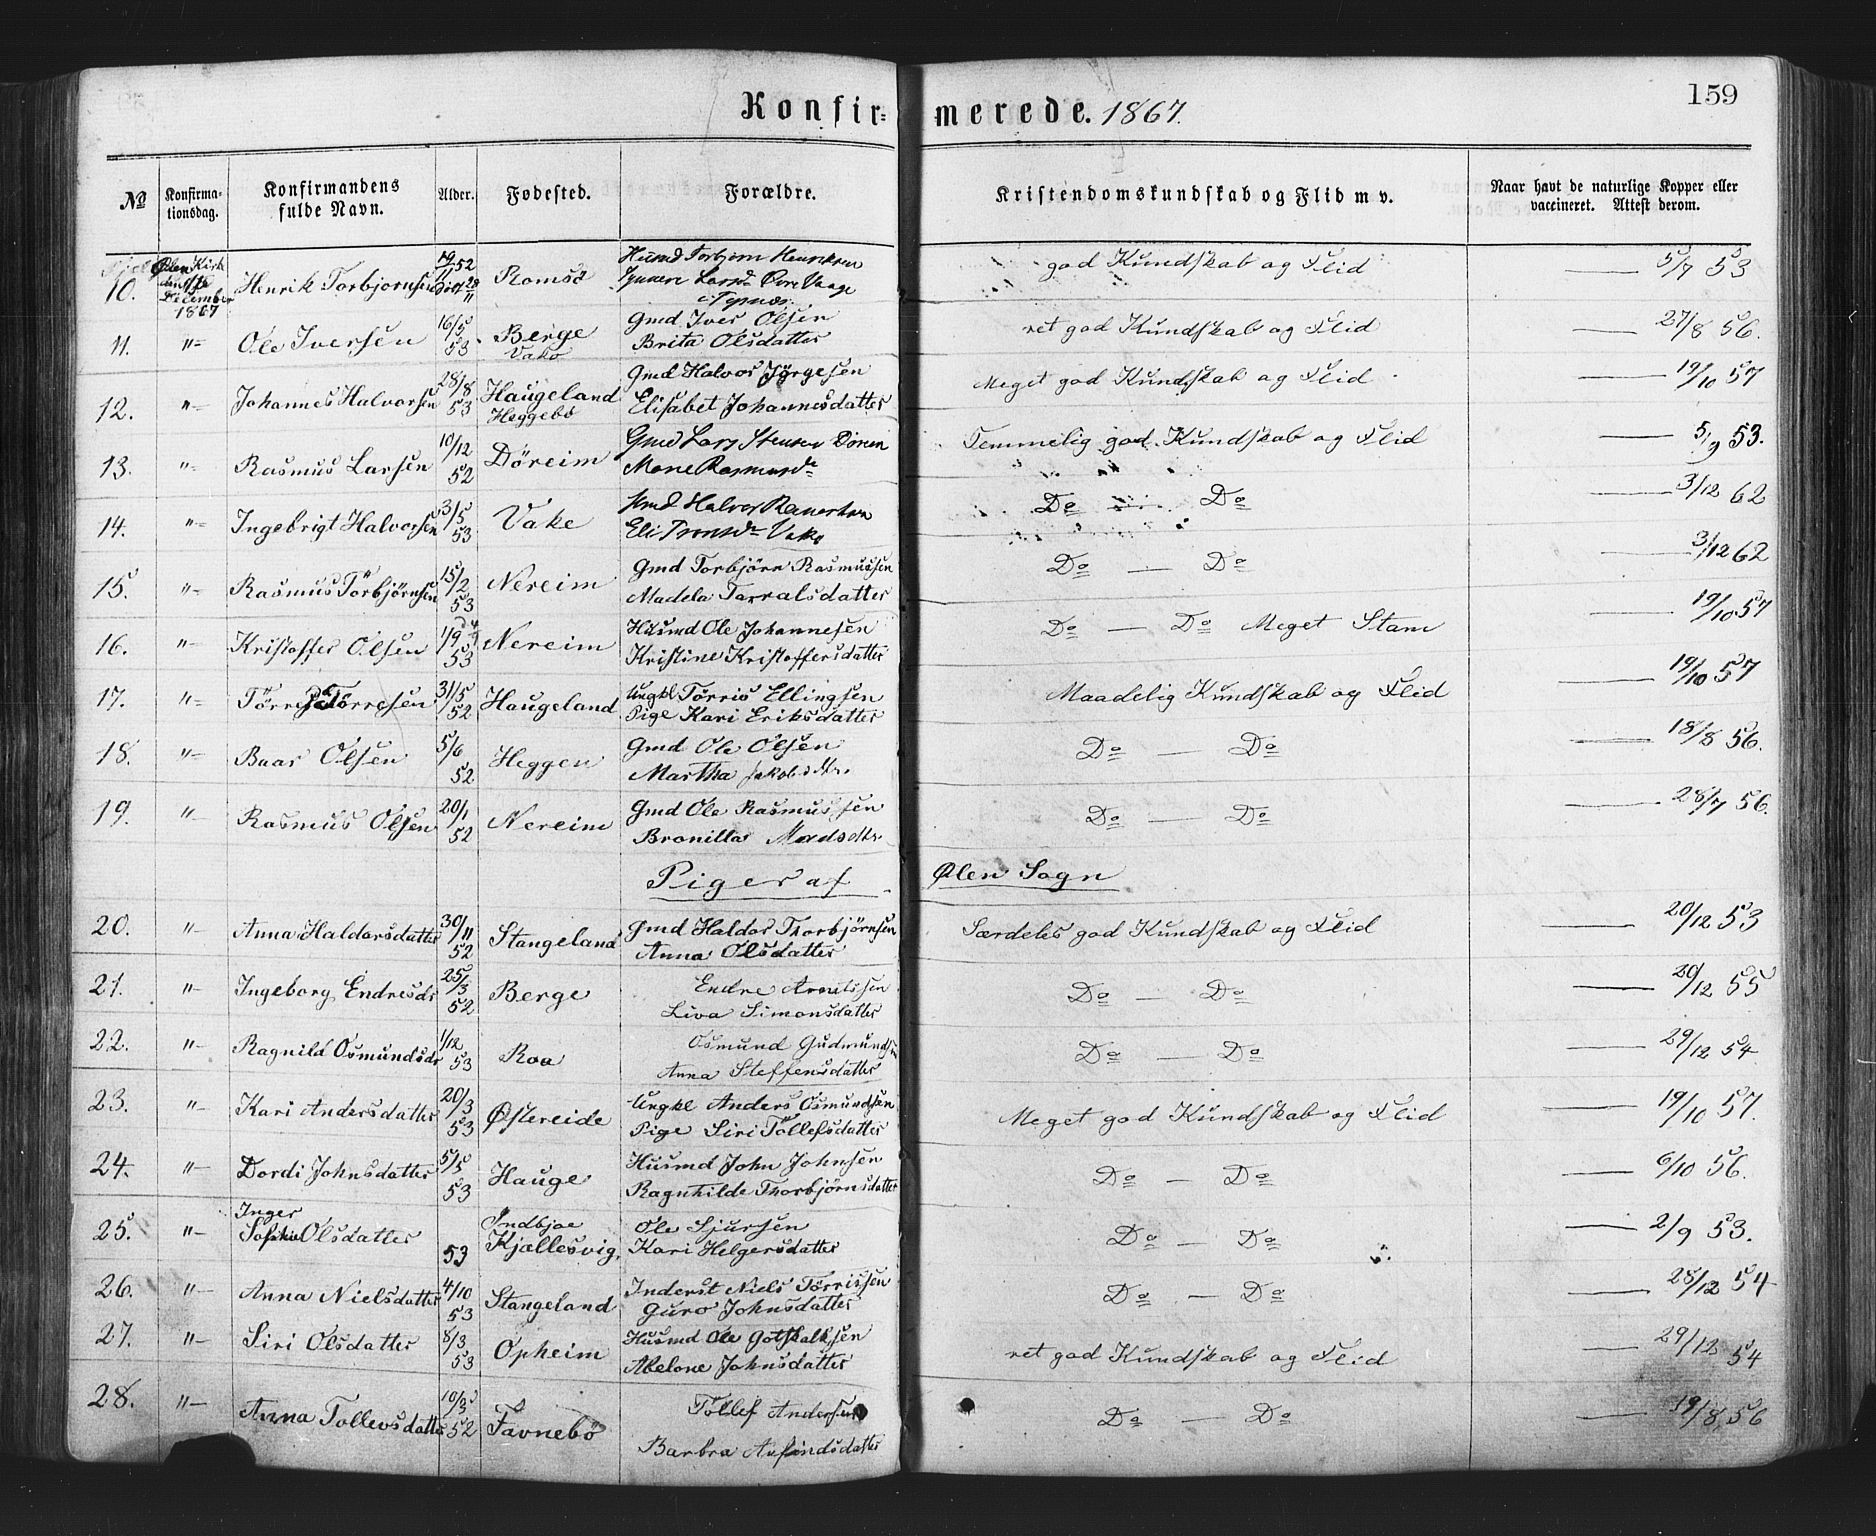 159
Konfirmerede. 1867.
№ Konfirmationsdag. Konfirmandens fulde Navn. Alder. Fødested. Forældre. Kristendomskundskab og Flid m v. Naar havt de naturlige Kopper eller vaccineret. Attest derom.
10. Ølen Kirk December 1867 Henrik Torbjørnsen 19/11 52 Romsø Husmd Torbjørn Henriksen god Kundskab og Flid — 5/7 53
11. "- Ole Iversen 16/5 53 Berge Vake Gmd Iver Olsen
Brita Olsdatter ret god Kundskab og Flid — 27/8 56.
12. "- Johannes Halvorsen 28/8 53 Haugeland Heggebø Gmd Halvor Jørgesen
Elisabet Johannesdatter Meget god Kundskab og Flid — 19/10 57
13. "- Rasmus Larsen 10/12 52 Döreim Gmd Lars
Temmelig god Kundskab og Flid — 5/9 53.
14. "- Ingebrigt Halvorsen 3/5 53 Vake Halvor
Eli Vake Do Do — 3/12 62
15. "- Rasmus Törbjörnsen 15/2 53 Nereim Gmd Torbjörn Rasmussen
Madela Tarralsdatter Do — Do — 3/12 62
16. "- Kristoffer Olsen 1/9 53 Nereim Husmd Ole Johannesen
Kristine Kristoffersdatter Do — Do Meget Stam — 19/10 57
17. "- Törresen 31/5 52 Haugeland Ungkl Törris Ellingsen
Pige Kari Eriksdatter Maadelig Kundskab og Flid — 19/10 57
18. "- Baar Olsen 5/6 52 Heggen Gmd Ole Olsen
Martha Jakobsdtr. Do — Do — 18/8 56.
19. "- Rasmus Olsen 20/1 52 Nereim Gmd Ole Rasmussen
Bronilla Madsdtr Do — Do — 28/7 56.
Piger af Ølen Sogn
20. "- Anna Haldorsdatter 30/11 52 Stangeland Gmd Haldor Thorbjörnsen
Anna Olsdatter Særdeles god Kundskab og Flid — 20/12 53
21. "- Ingeborg Endresdr 25/3 52 Berge Endre
Liva Simonsdatter Do — Do — 20/12 55
22. "- Ragnild Osmundsdr 1/12 53 Roa Osmund Gudmundsen
Anna Steffensdatter Do — Do — 29/12 54
23. "- Kari Andersdatter 20/3 53 Østereide Ungkl Anders Osmundsen
Pige Siri Tollefsdatter Meget god Kundskab og Flid — 19/10 57.
24. "- Dordi Johnsdatter 5/5 53 Hauge Husmd John Johnsen
Ragnhilde Thorbjörnsdatter Do — Do — 6/10 56.
25. "- Inger Sofhie Olsdatter 53 Indbjoe Kjællesvig, Ole Sjursen
Kari Helgersdatter Do — Do — 2/9 53.
26. "- Anna Nielsdatter 4/10 53 Stangeland Inderst Niels Törrissen
Guro Johnsdatter Do — Do — 28/12 54
27. "- Siri Olsdatter 8/3 53 Opheim Husmd Ole Gotskalksen
Abelone Johnsdatter ret god Kundskab og Flid — 29/12 54
28. "- Anna Tollevsdatter 10/3 52 Favnebö Tollef Andersen
Barbra Anfindsdatter Do — Do — 19/8 56